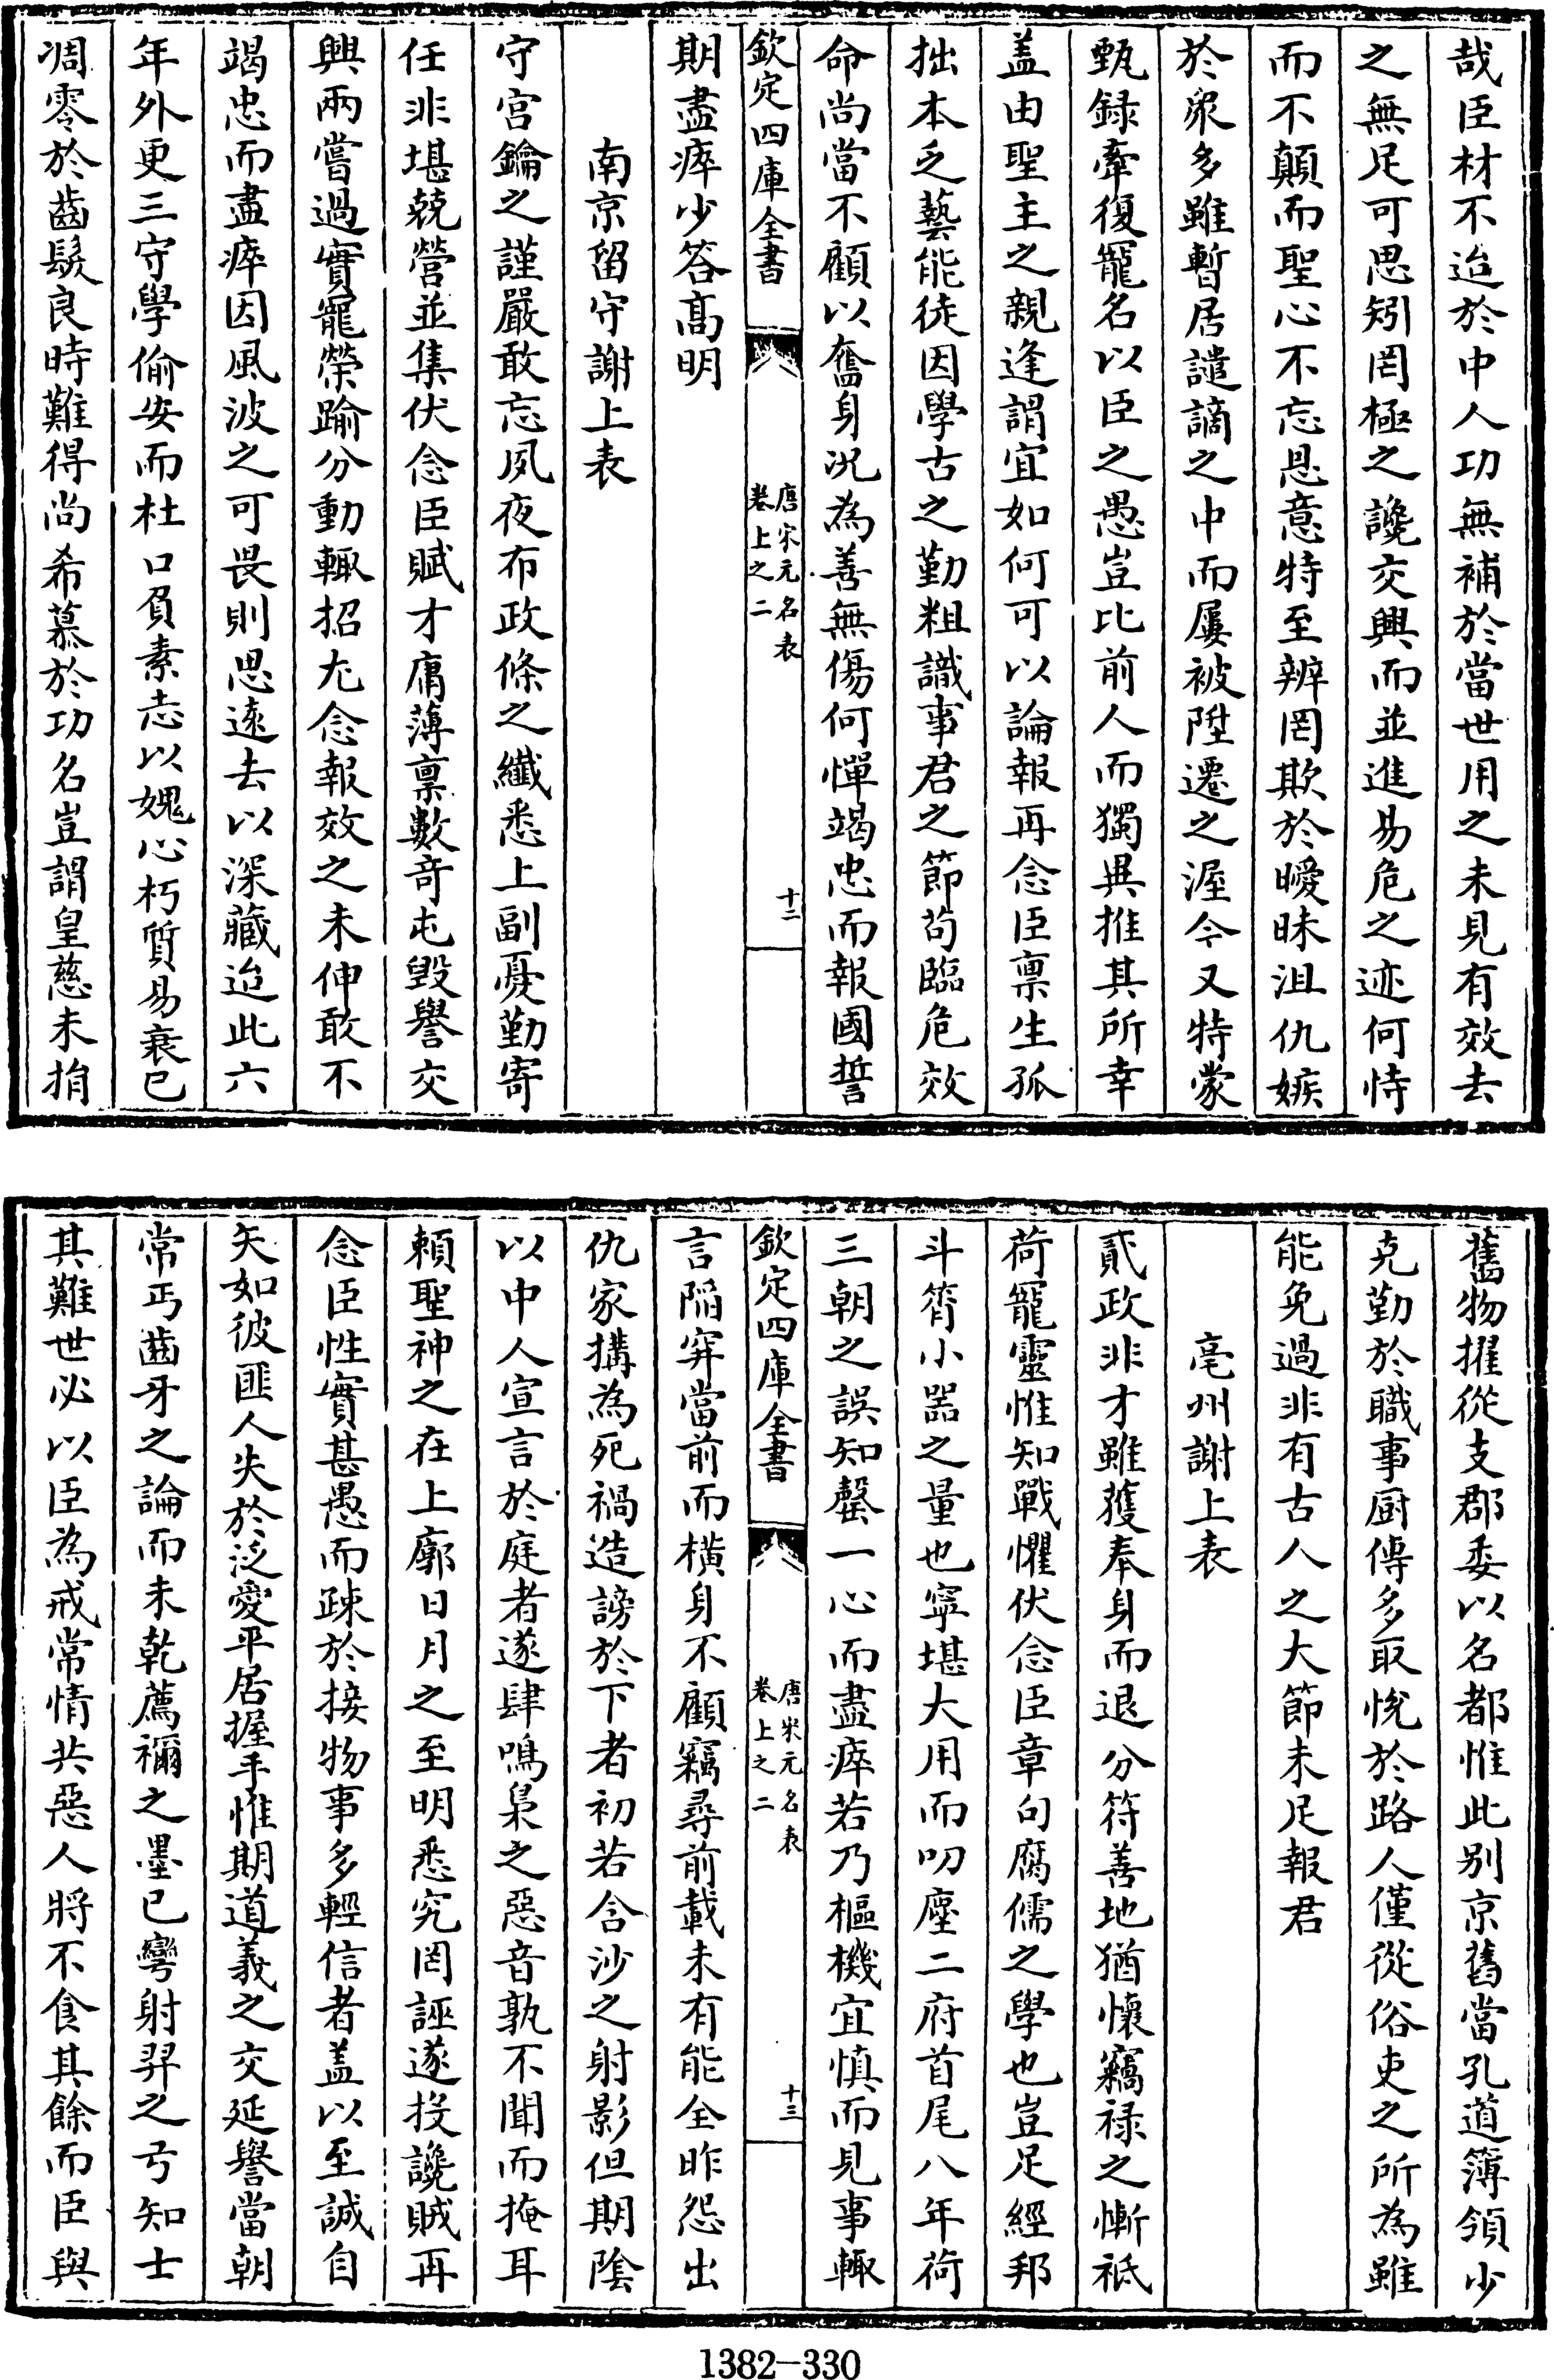 哉臣材不迨於中人功無補於當世用之未見有效去
之無足可思矧罔極之讒交興而並進易危之迹何恃
而不顛而聖心不忘恩意特至辨罔欺於曖昧沮仇嫉
於衆多雖暫居譴謫之中而屢被陞遷之渥今又特蒙
甄録牽復寵名以臣之愚豈比前人而獨異推其所幸
盖由聖主之親逢謂宜如何可以論報再念臣禀生孤
拙本乏藝能徒因學古之勤粗識事君之節苟臨危效
命尚當不顧以奮身况為善無傷何憚竭忠而報國誓
欽定四庫全書
唐宋元名表
卷上之二
十二
期盡瘁少答髙明
南京留守謝上表
守宫鑰之謹嚴敢忘夙夜布政條之纖悉上副憂勤寄
任非堪兢營並集伏念臣賦才庸薄禀數竒屯毀譽交
興兩嘗過實寵榮踰分動輙招尤念報效之未伸敢不
竭忠而盡瘁因風波之可畏則思遠去以深藏迨此六
年外更三守學偷安而杜口負素志以媿心朽質易衰已
凋零於齒髮良時難得尚希慕於功名豈謂皇慈未捐
舊物擢從支郡委以名都惟此别京舊當孔道簿領少
克勤於職事厨傳多取悅於路人僅從俗吏之所為雖
能免過非有古人之大節未足報君
亳州謝上表
貳政非才雖獲奉身而退分符善地猶懷竊禄之慚祗
荷寵靈惟知戰懼伏念臣章句腐儒之學也豈足經邦
斗筲小器之量也寧堪大用而叨塵二府首尾八年荷
三朝之誤知罄一心而盡瘁若乃樞機宜慎而見事輙
欽定四庫全書
唐宋元名表
卷上之二
十三
言陷穽當前而横身不顧竊尋前載未有能全昨怨出
仇家搆為死禍造謗於下者初若含沙之射影但期隂
以中人宣言於庭者遂肆鳴梟之惡音孰不聞而掩耳
賴聖神之在上廓日月之至明悉究罔誣遂投讒賊再
念臣性實甚愚而疎於接物事多輕信者盖以至誠自
矢如彼匪人失於泛愛平居握手惟期道義之交延譽當朝
常丐齒牙之論而未乾薦禰之墨已彎射羿之弓知士
其難世必以臣為戒常情共惡人將不食其餘而臣與
1382-330